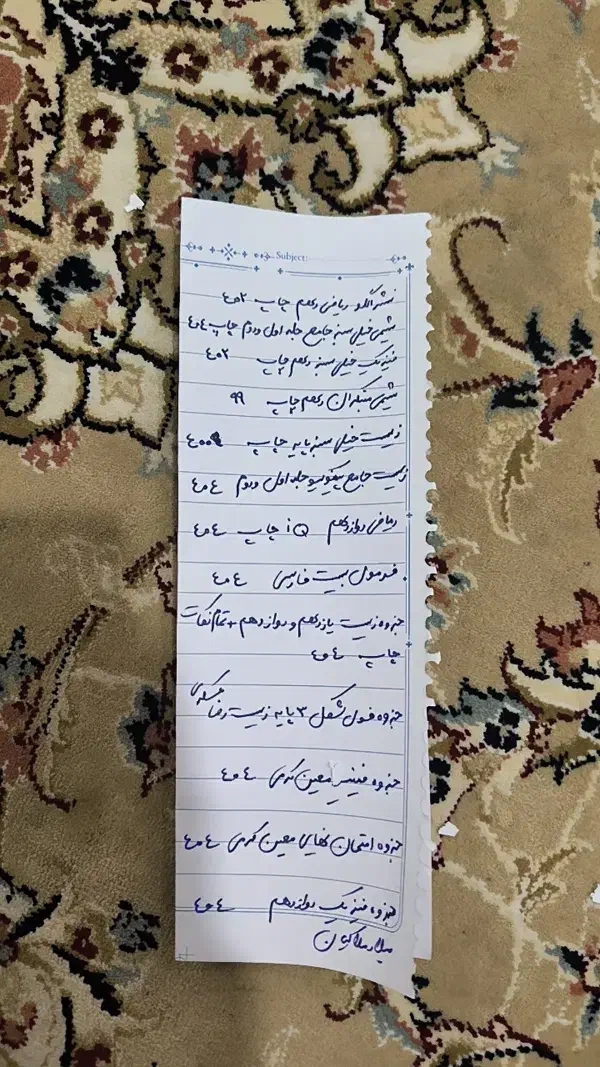 Subject:
نشر الگو ریاضی دهم چاپ ۴۰۲
شیمی خیلی سبز جامع جلد اول و دوم چاپ ۴۰۴
فیزیک خیلی سبز دهم چاپ ۴۰۲
شیمی مبتکران دهم چاپ ۹۹
زیست خیلی سبز پایه چاپ
زیست جامع جلد اول و دوم ۴۰۴
ریاضی دوازدهم iQ چاپ ۴۰۴
فرمول بیست فارسی ۴۰۴
جزوه زیست یازدهم و دوازدهم + تمام نکات
چاپ ۴۰۴
جزوه فول شکل ۳ پایه زیست رضا
جزوه معین کرمی ۴۰۴
جزوه امتحان نهایی معین کرمی ۴۰۴
جزوه فیزیک دوازدهم ۴۰۴
میلاد